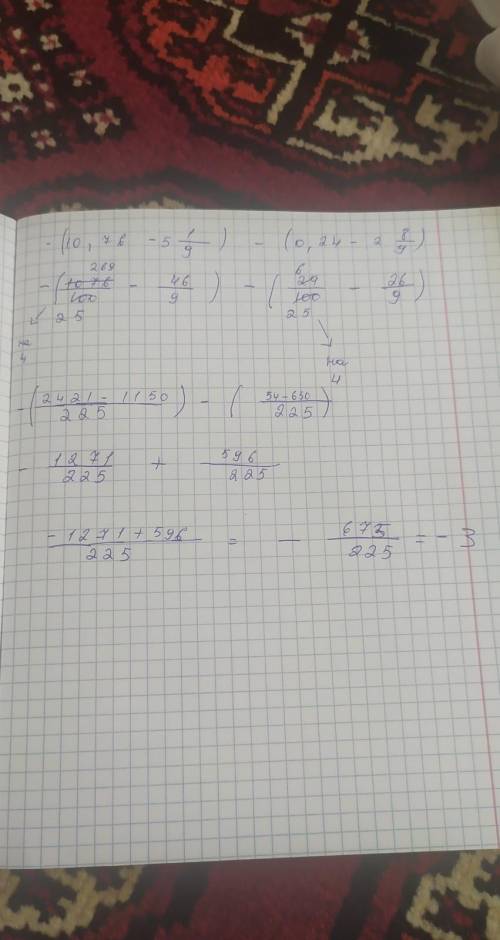 - (10,76 - 5 1/9) - (0,24 - 2 8/9)
- (269 1076/100 25 - 46/9) - (6 24/100 25 - 26/9)
на 4
на 4
- (2421 - 1150/225) - (54 - 650/225)
- 1271/225 + 596/225
-1271 + 596/225 = - 675/225 = - 3